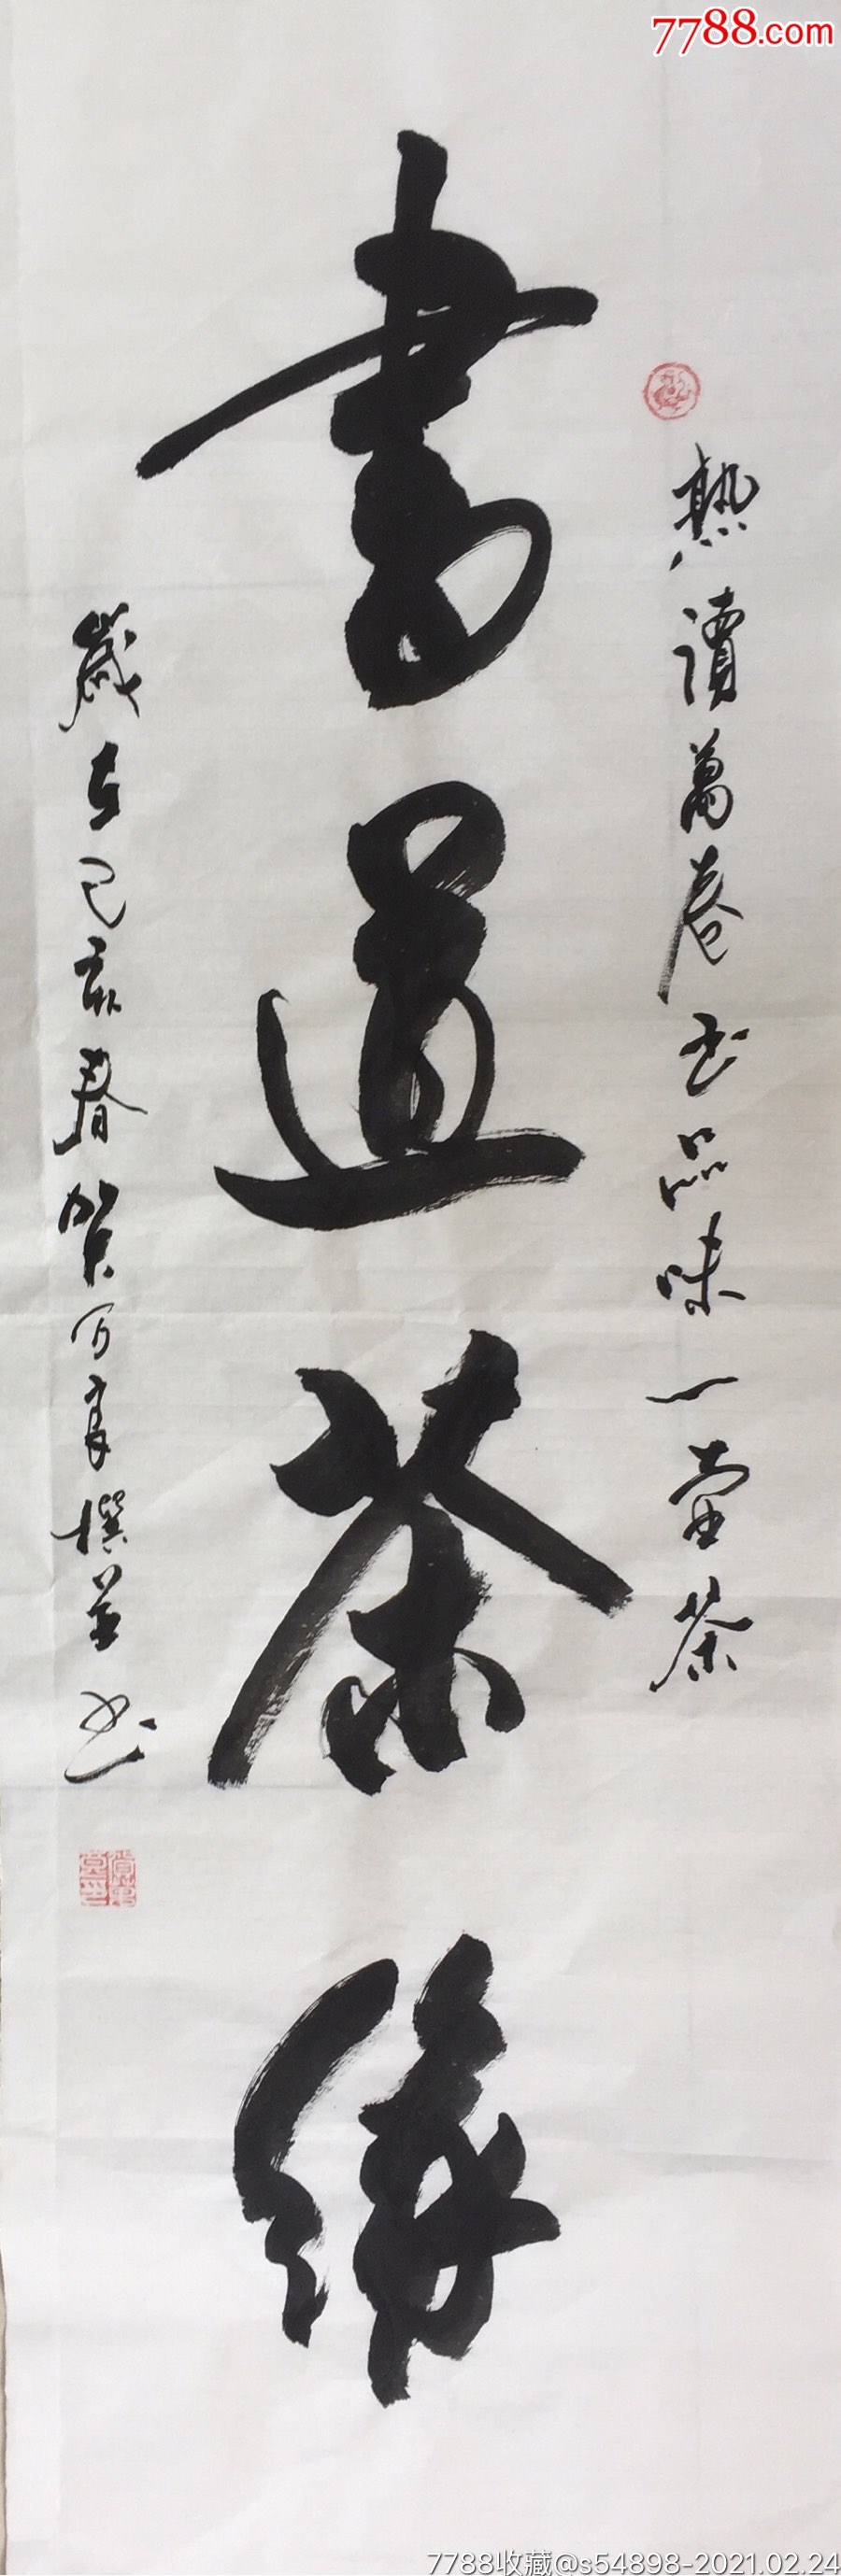 7788.com
熟讀萬卷书品味一壺茶
書道茶缘
歲在己亥春賀 撰并书
7788收藏@s54898-2021.02.24